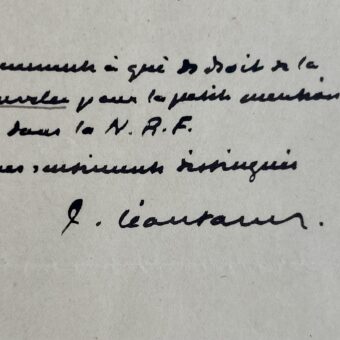 à qui de droit de la
pour la petite mention
dans la N. R. F.
sentiments distingués
P. Léautaud.